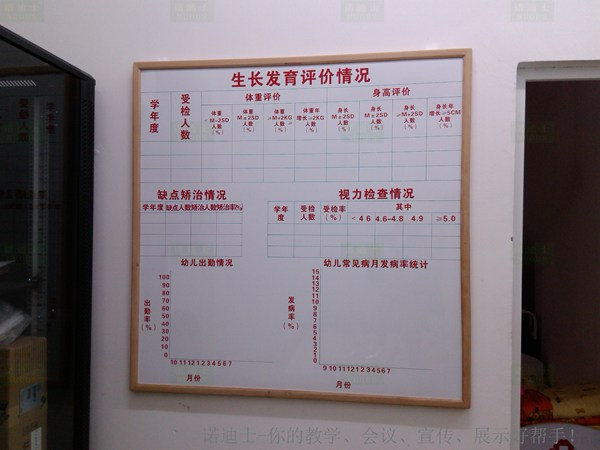 生长发育评价情况
学年度
受检人数
体重评价
身高评价
体重 <M-2SD 人数 (%)
体重 M±2SD 人数 (%)
体重 ≥M+2KG 人数 (%)
体重年 增长≥2KG 人数 (%)
身长 M±2SD 人数 (%)
身长 M±2SD 人数 (%)
身长 ≥M+2SD 人数 (%)
身长年 增长≥5CM 人数 (%)
缺点矫治情况
学年度 缺点人数 矫治人数 矫治率%
视力检查情况
学年度 受检人数 受检率(%) 其中
<4.6 4.6-4.8 4.9 ≥5.0
幼儿出勤情况
出勤率(%)
100
90
80
70
60
50
40
30
20
10
0
10 11 12 1 2 3 4 5 6 7
月份
幼儿常见病月发病率统计
发病率(%)
15
14
13
12
11
10
9
8
7
6
5
4
3
2
1
0
9 10 11 12 1 2 3 4 5 6 7
月份
诺迪士-你的教学、会议、宣传、展示好帮手!